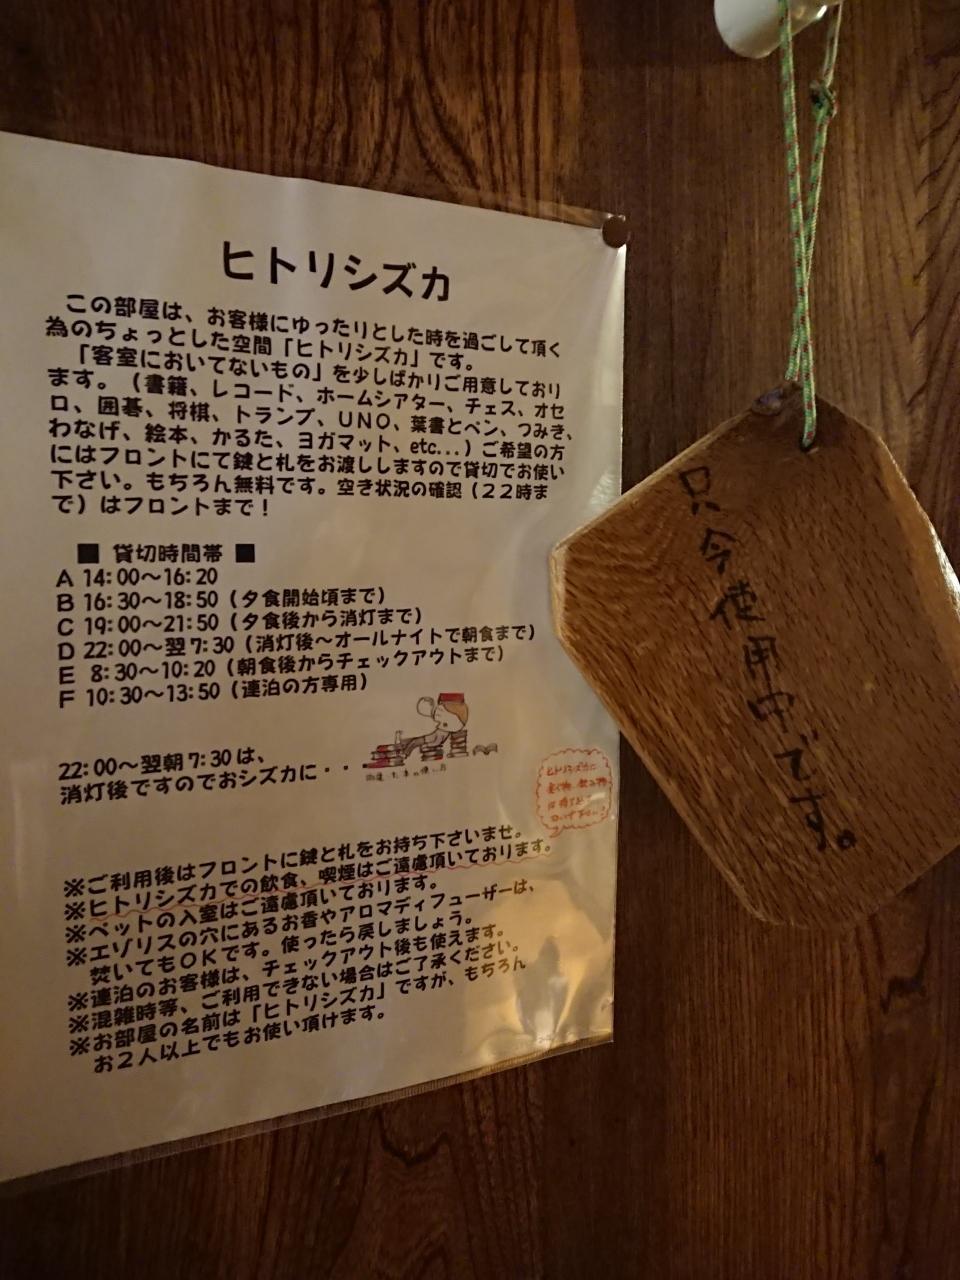 ヒトリシズカ
この部屋は、お客様にゆったりとした時を過ごして頂く
為のちょっとした空間「ヒトリシズカ」です。
「客室においてないもの」を少しばかりご用意しており
ます。（書籍、レコード、ホームシアター、チェス、オセ
ロ、囲碁、将棋、トランプ、ＵＮＯ、葉書とペン、つみき、
わなげ、絵本、かるた、ヨガマット、etc...）ご希望の方
にはフロントにて鍵と札をお渡ししますので貸切でお使い
下さい。もちろん無料です。空き状況の確認（２２時ま
で）はフロントまで！
■ 貸切時間帯 ■
A 14:00～16:20
B 16:30～18:50（夕食開始頃まで）
C 19:00～21:50（夕食後から消灯まで）
D 22:00～翌7:30（消灯後～オールナイトで朝食まで）
E 8:30～10:20（朝食後からチェックアウトまで）
F 10:30～13:50（連泊の方専用）
22:00～翌朝7:30は、
消灯後ですのでおシズカに・・
ヒトリシズカに
※ご利用後はフロントに鍵と札をお持ち下さいませ。
※ヒトリシズカでの飲食、喫煙はご遠慮頂いております。
※ペットの入室はご遠慮頂いております。
※エゾリスの穴にあるお香やアロマディフューザーは、
焚いてもＯＫです。使ったら戻しましょう。
※連泊のお客様は、チェックアウト後も使えます。
※混雑時等、ご利用できない場合はご了承ください。
※お部屋の名前は「ヒトリシズカ」ですが、もちろん
お２人以上でもお使い頂けます。
只今使用中です。